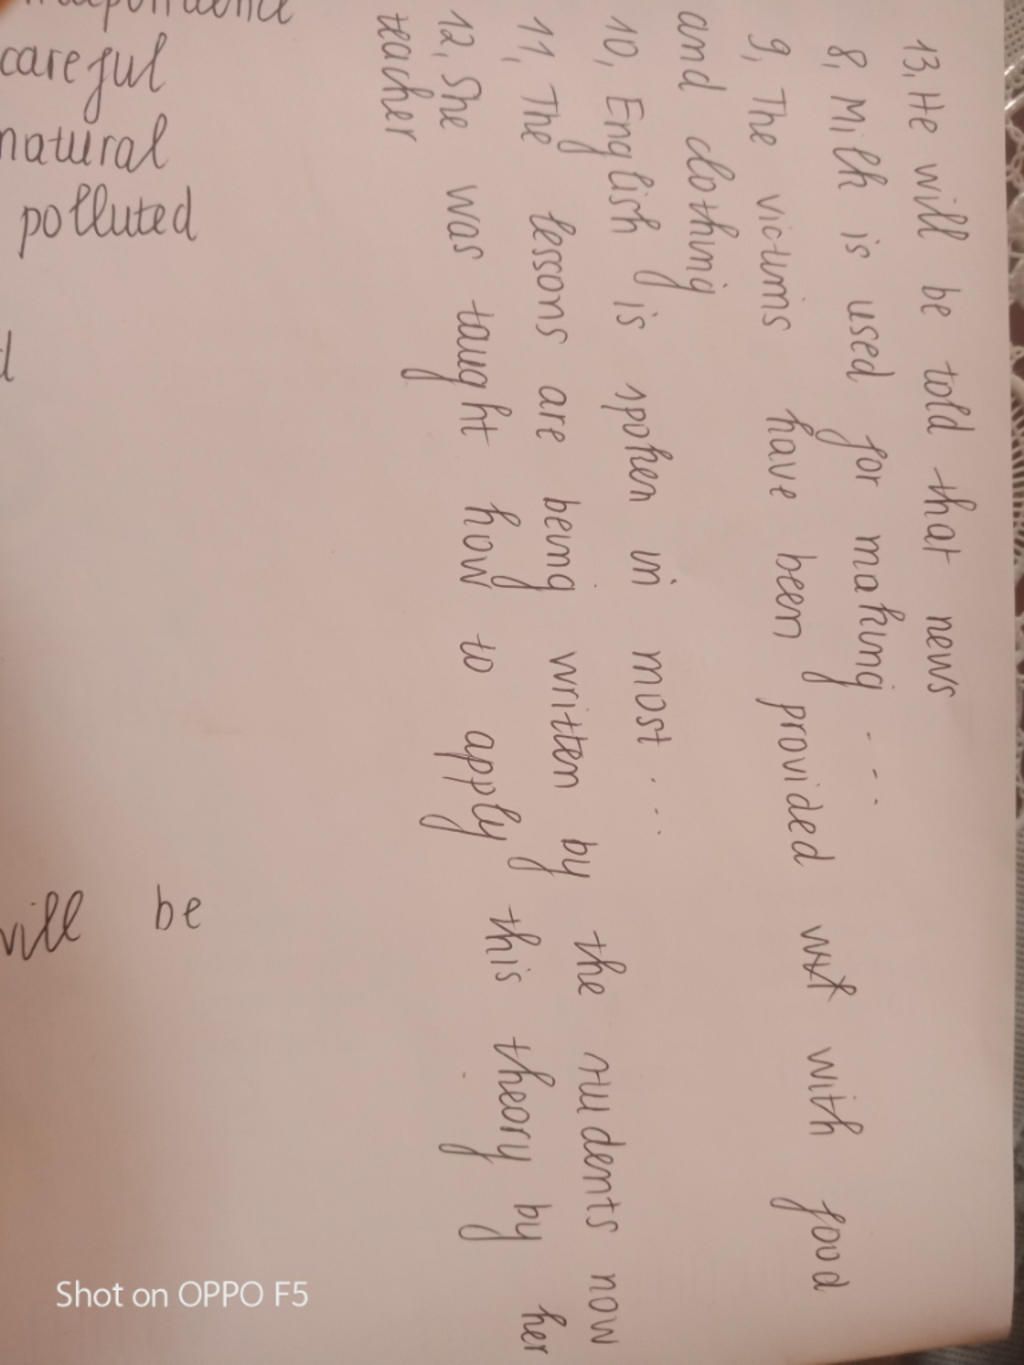 13, He will be told that news
8, Milk is used for making ....
9, The victims have been provided with food
and clothing
10, English is spoken in most ...
11, The lessons are being written by the students now
12, She was taught how to apply this theory by her
teacher
careful
natural
polluted
will be
Shot on OPPO F5